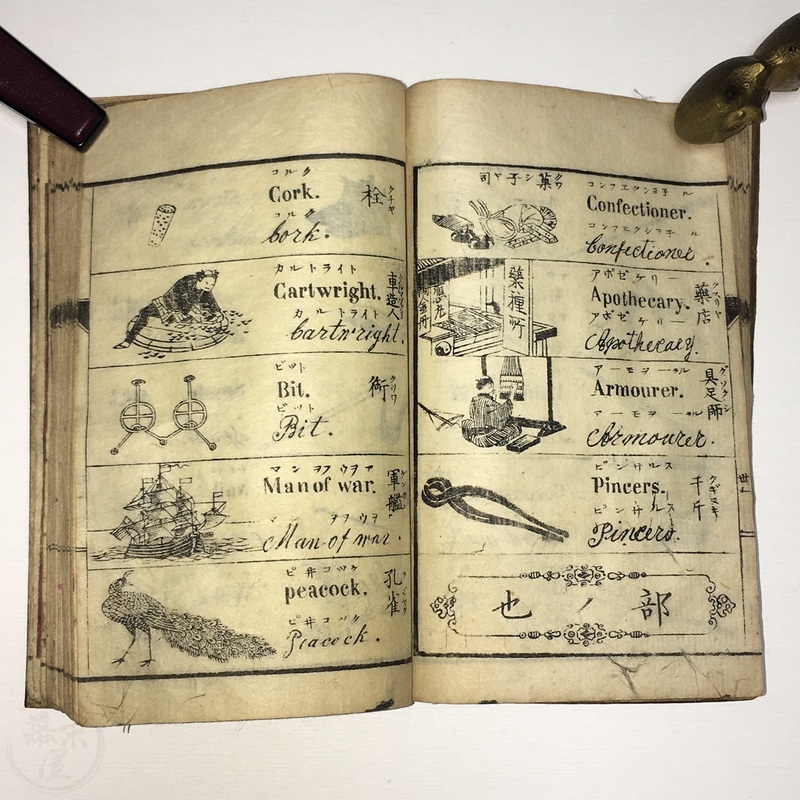 コンフエクシヨ子ル
Confectioner.
コンフエクシヨ子ル
Confectioner.
アポゼケリー
Apothecary.
アポゼケリー
Apothecary.
藥店
クスリヤ
藥種所
アーモヲーラル
Armourer.
アーモヲーラル
Armourer.
具足師
グソクシ
ピンサルス
Pincers.
ピンサルス
Pincers.
千斤
クギヌキ
也ノ部
コルク
Cork.
コルク
Cork.
栓
カルトライト
Cartwright.
カルトライト
Cartwright.
車造人
ビット
Bit.
ビット
Bit.
マンヲフウヲア
Man of war.
マンヲフウヲア
Man of war.
軍艦
ピ井コツク
peacock.
ピ井コツク
Peacock.
孔雀
クジヤク